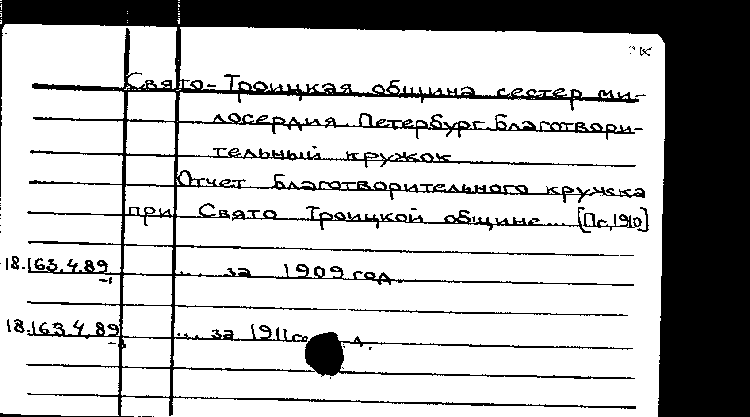 Свято-Троицкая община сестер ми-
лосердия. Петербург. Благотвори-
тельный кружок
Отчет благотворительного кружка
при Свято Троицкой общине... [Пг, 1910]
18.163.4.89 ... за 1909 год.
-1
18.163.4.89 ... за 1911 го д.